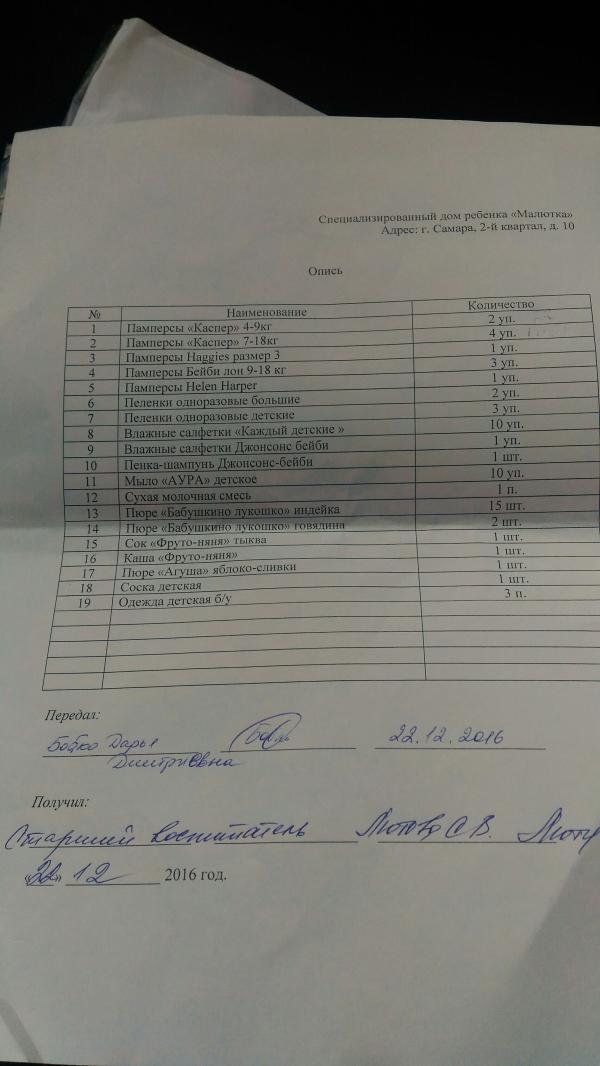 Специализированный дом ребенка «Малютка»
Адрес: г. Самара, 2-й квартал, д. 10
Опись
№ Наименование Количество
1 Памперсы «Каспер» 4-9кг 2 уп.
2 Памперсы «Каспер» 7-18кг 4 уп.
3 Памперсы Haggies размер 3 1 уп.
4 Памперсы Бейби лон 9-18 кг 3 уп.
5 Памперсы Helen Harper 1 уп.
6 Пеленки одноразовые большие 2 уп.
7 Пеленки одноразовые детские 3 уп.
8 Влажные салфетки «Каждый детские » 10 уп.
9 Влажные салфетки Джонсонс бейби 1 уп.
10 Пенка-шампунь Джонсонс-бейби 1 шт.
11 Мыло «АУРА» детское 10 уп.
12 Сухая молочная смесь 1 п.
13 Пюре «Бабушкино лукошко» индейка 15 шт.
14 Пюре «Бабушкино лукошко» говядина 2 шт.
15 Сок «Фруто-няня» тыква 1 шт.
16 Каша «Фруто-няня» 1 шт.
17 Пюре «Агуша» яблоко-сливки 1 шт.
18 Соска детская 1 шт.
19 Одежда детская б/у 3 п.
Передал:
Бобко Дарья 22.12.2016
Дмитриевна
Получил:
Старший воспитатель Лютова С.В.
«22» 12 2016 год.